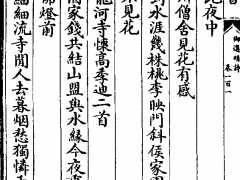 御選明詩 卷一百一
夜中
僧舍見花有感
到水涯幾株桃李映門斜侯家
見花
龍河寺懷高季迪二首
家錢共結山盟與水緣今夜
佛燈前
細細流寺閒人去暮烟愁獨憐